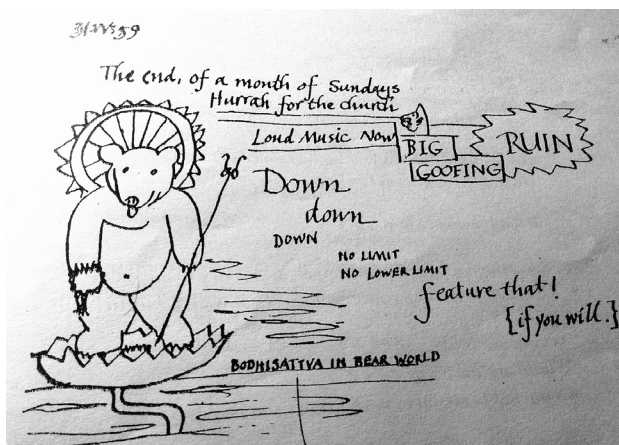 31:VII:59
The end, of a month of Sundays
Hurrah for the church
Loud Music Now
BIG
GOOFING
RUIN
Down
down
DOWN
NO LIMIT
NO LOWER LIMIT
feature that!
{if you will.}
BODHISATTVA IN BEAR WORLD